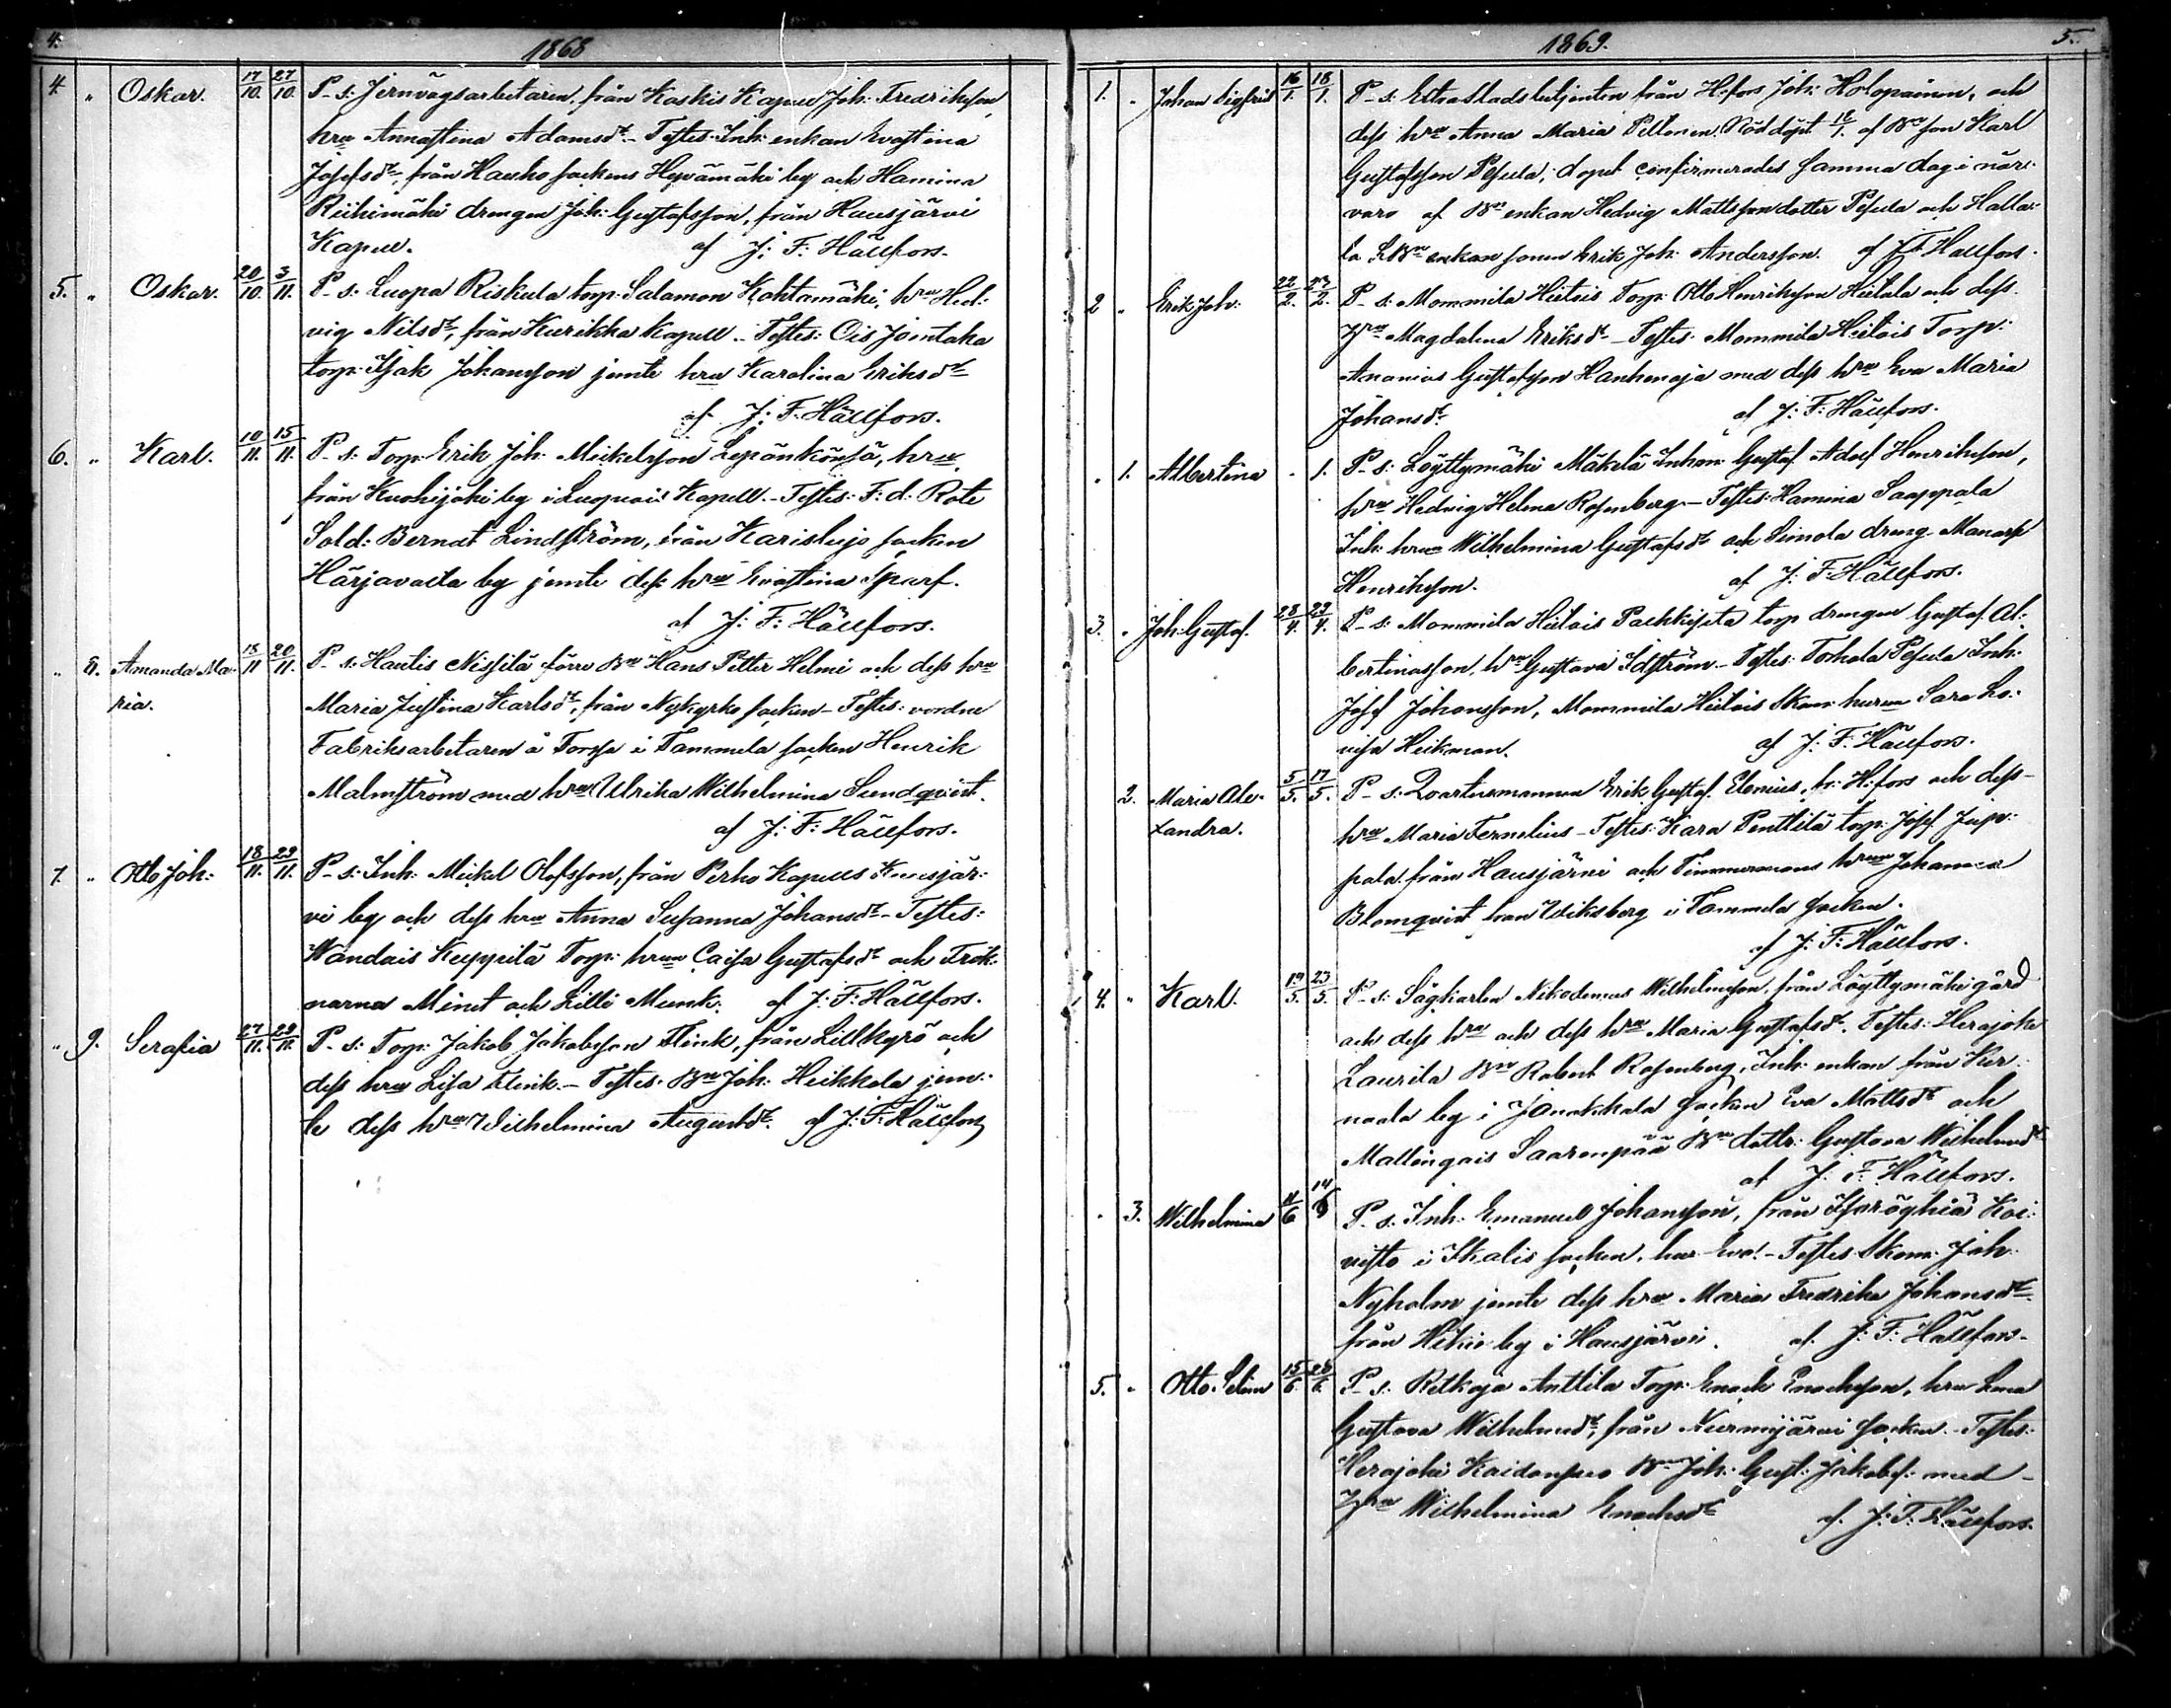 4.
1868
4. " Oskar. 17/10. 27/10. P-s: Jernvägsarbetaren från Koskis Kapell Joh: Fredriksson,
hru Annastina Adamsdr – Testes: Inh: enkan Evastina
Josefsdr, från Hauho sockens Hyvämäki by och Hamina
Riihimäki drengen Joh: Gustafsson, från Hausjärvi
Kapell. af J: F: Hällfors.
5. " Oskar. 20/10. 3/11. P-s: Luopa Riskula torp: Salamon Kohtamäki, hru Hed:
vig Nilsdr, från Kurikka Kapell – Testes: Ois Jointaka
torp: Isak Johansson jemte hru Karolina Eriksdr
af J: F: Hällfors.
6. " Karl. 10/11. 15/11. P-s: Torp: Erik Joh: Mickelsson Lepänkönsä, hru
från Kuohijoki by i Luopiois Kapell – Testes: F: d: Rote
Sold: Berndt Lindström, från Karislojo socken
Härjavalta by jemte dess hru Evastina Sparf.
af J: F: Hällfors.
" 8. Amanda Ma- 18/11 20/11. P-s: Hautis Nissilä förre Bn Hans Petter Helmi och dess hru
ria. Maria Justina Karlsdr, från Nykyrko socken – Testes: vordne
Fabriksarbetaren å Forssa i Tammela socken Henrik
Malmström med hru Ulrika Wilhelmina Sundqvist.
af J: F: Hällfors.
7. " Otto Joh: 18/11. 29/11. P-s: Inh: Mickel Olofsson, från Perho Kapells
vi by och dess hru Anna Susanna Johansdr – Testes:
Wandais Keppilä Torp: hrun Caisa Gustafsdr och Frök:
narna Minet och Lilli Munk. af J: F: Hällfors.
" 9. Serafia 27/11. 29/11. P-s: Torp: Jakob Jakobsson Flink, från Lillkyrö och
dess hru Lisa Flink. – Testes: Bn Joh: Heikkola jem:
te dess hru Wilhelmina Augustdr. af J: F: Hällfors
1869.
5.
1. " Johan Sigfrid 16/1. 18/1. P-s: Extra Stadsbetjenten från H:fors Joh: Holopainen, och
dess hru Anna Maria Pellonen. Nöd döpt 16/1. af Bn son Karl
Gustafsson Pesula; dopet confirmerades samma dag i när:
varo af Bn enkan Hedvig Mattssondotter Pesula och Halla:
la enkan sonen Erik Joh: Andersson. af J F Hällfors.
2 " Erik Joh: 22/2. 23/2. P-s: Mommila Hietois Torp: Otto Henriksson Hietala och dess
hru Magdalena Eriksdr – Testes: Mommila Hietois Torp:
Ananias Gustafsson Hanhenoja med dess hru Eva Maria
Johansdr. af J: F: Hällfors.
" 1. Albertina " 1. P-s: Löyttymäki Mäkelä Inhan: Gustaf Adolf Henriksson,
hru Hedvig Helena Rosenberg – Testes: Hamina Saappala
Inh: hrun Wilhelmina Gustafsdr och Simola dreng
Henriksson. af J: F: Hällfors.
3. " Joh: Gustaf. 28/4. 29/4. P-s: Mommila Hietois Pachkista torp drengen Gustaf Al:
bertinasson, hru Gustava Idström – Testes: Torhola Pesula Inh:
Josef Johansson, Mommila Hietois Skom: hurun Sara Lo:
visa Heikman. af J: F: Hällfors.
2. Maria Ale- 5/5. 17/5. P-s: Qvartersmannen Erik Gustaf Elenius, fr: H:fors och dess
xandra. hru Maria Fernelius – Testes: Kara Penttilä torp: Josef Jup:
pala från Hausjärvi och Timmermans hrun Johanna
Blomqvist från Wiksberg i Tammela socken.
af J: F: Hällfors.
4. " Karl. 19/5. 23/5. P-s: Sågkarlen Nikodemus Wilhelmsson, från Löyttymäki gård
och dess hru och dess hru Maria Gustafsdr. Testes: Herajoki
Laurila Bn Robert Rosenberg, Inh: enkan från Ker:
naala by i Janakkala socken Eva Mattsdr och
Mallingais Saarenpää Bn dottr: Gustava Wilhelmsdr
af J. F. Hällfors.
" 3. Wilhelmina 11/6 14/6 P-s: Inh: Emanuel Johansson, från Isoröyhiö Koi:
visto i Ikalis socken, hru Eva! – Testes: Skom: Joh:
Nyholm jemte dess hru Maria Fredrika Johansdr
från Hikiö by i Hausjärvi. af. J: F: Hällfors
5. " Otto Selim 15/6. 28/6. P-s: Retkoja Anttila Torp: Enock Enocksson, hru Lena
Gustava Wilhelmsdr, från Nurmijärvi socken – Testes:
Herajoki Kaidansuo Bn Joh: Gust: Jakobs: med
hru Wilhelmina Enocksdr af. J: F: Hällfors.